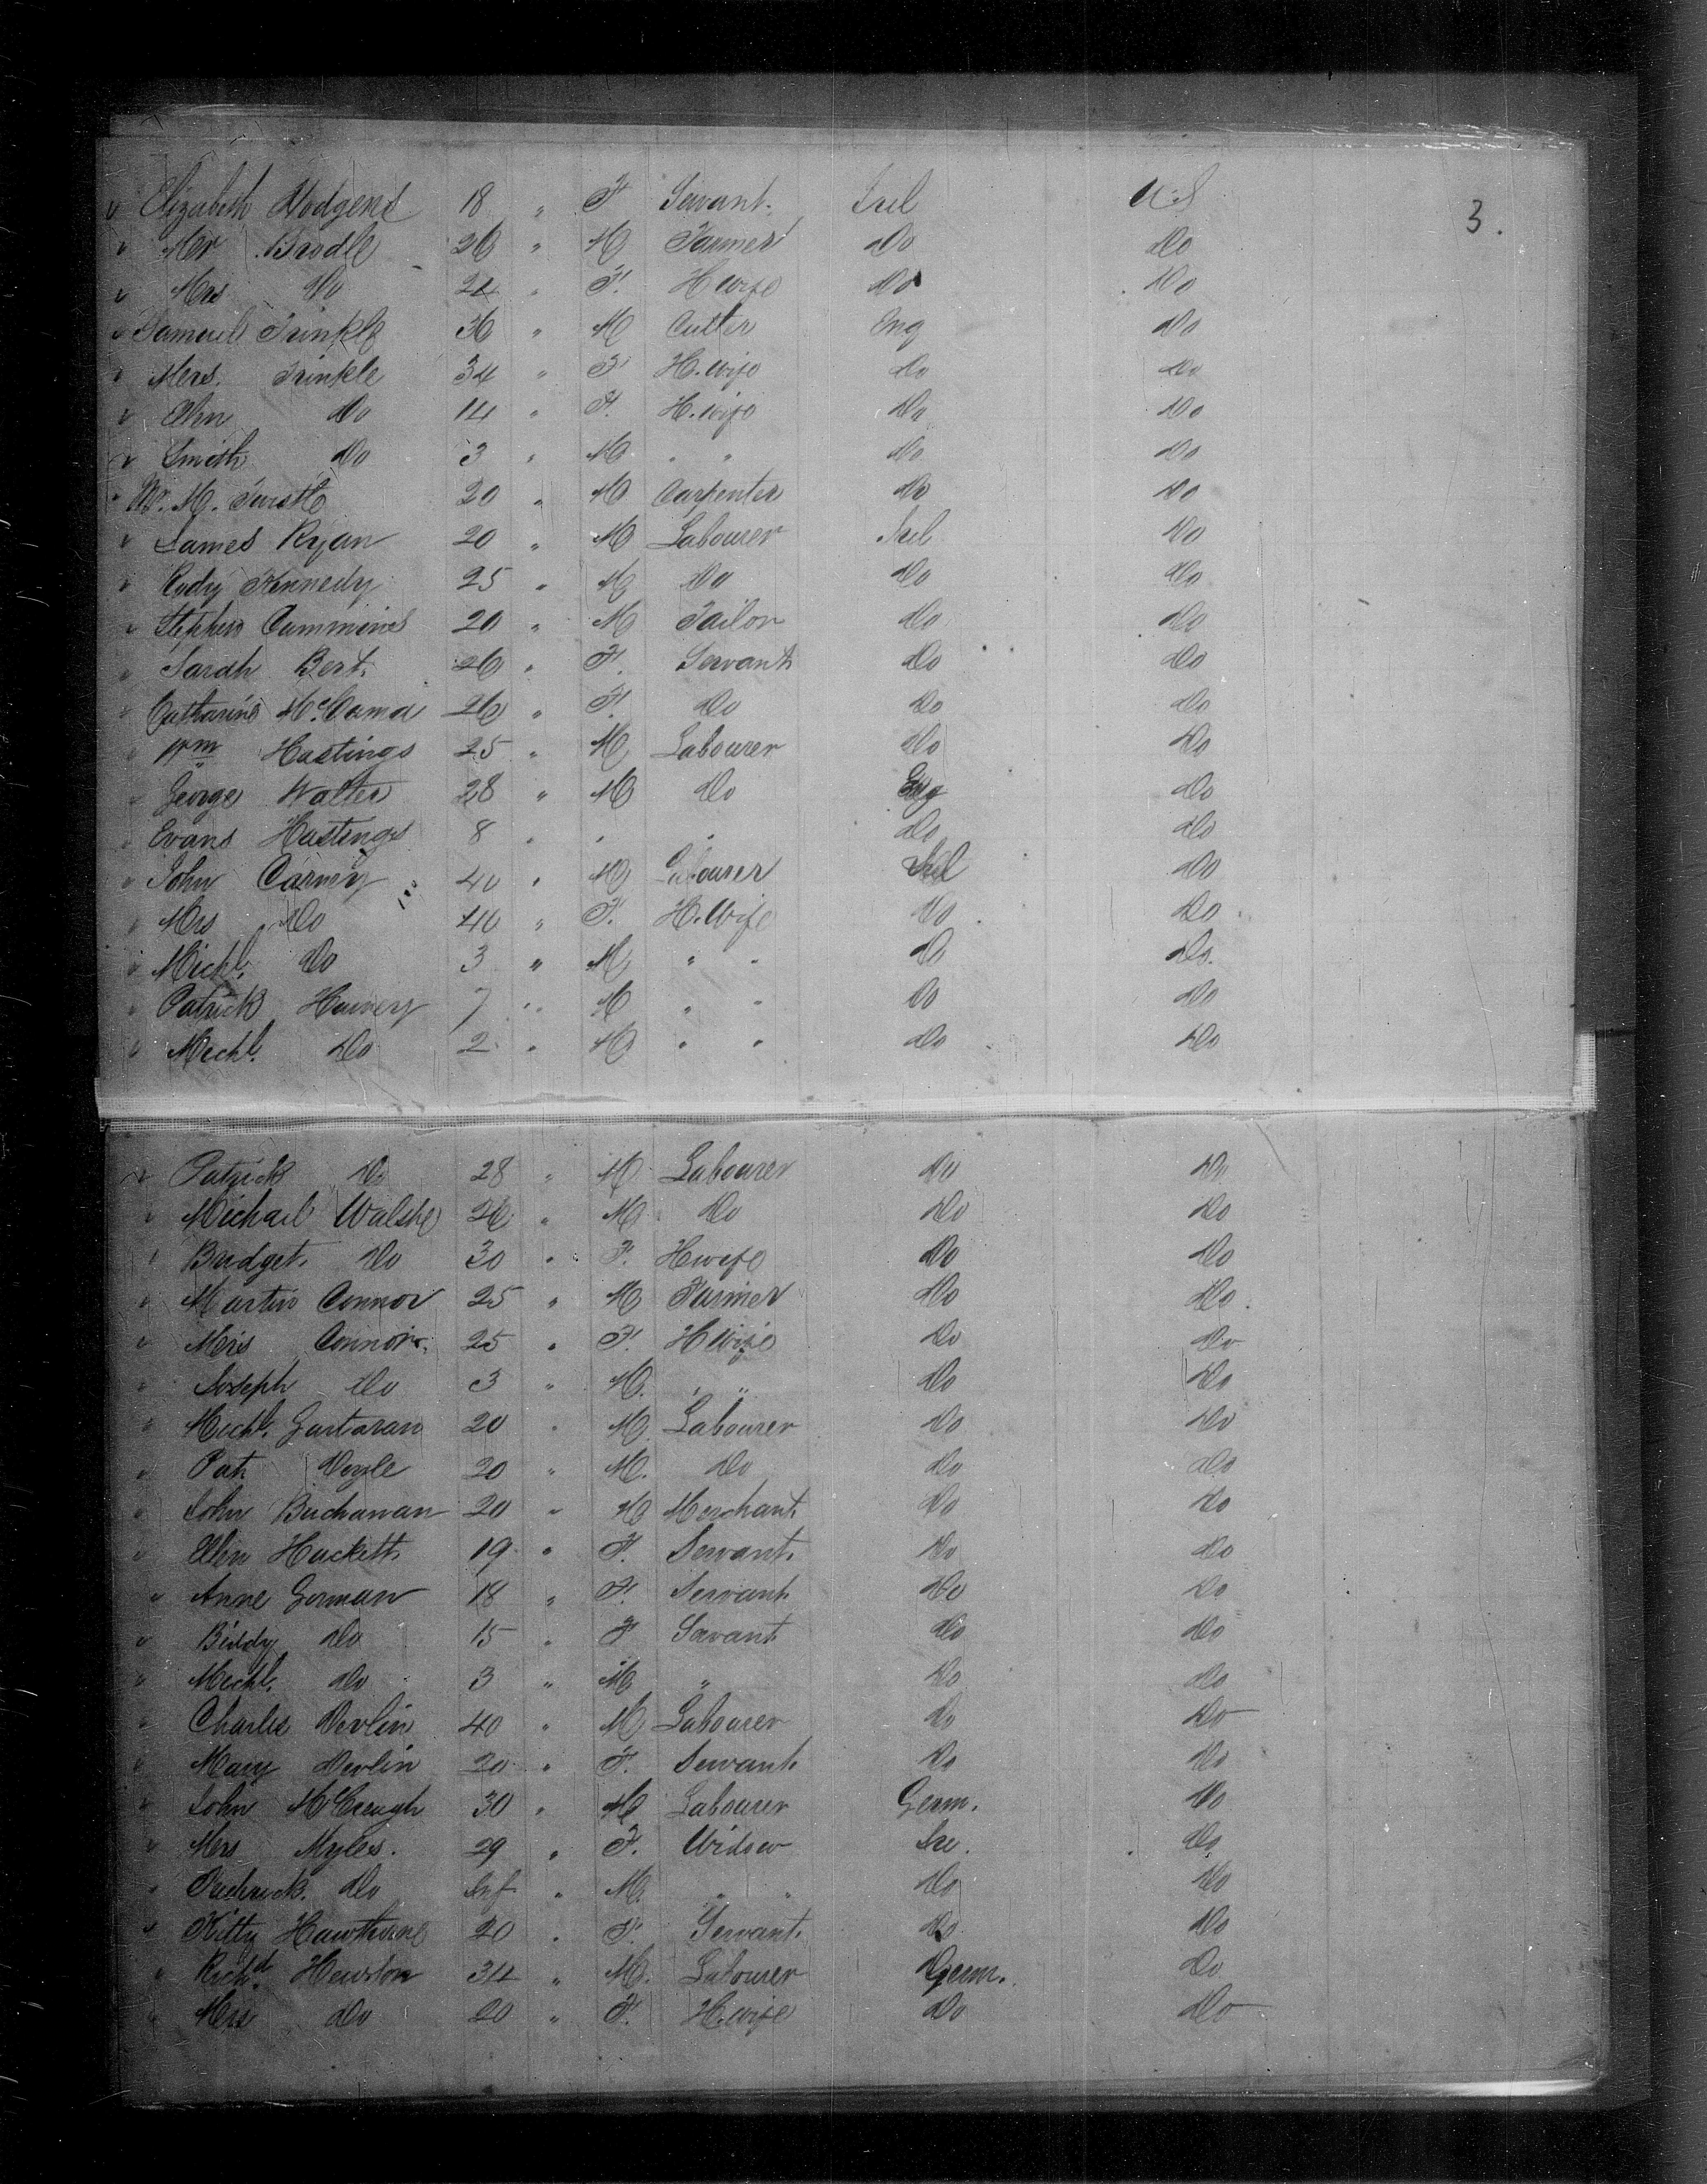 Elizabeth Hodgens 18 " F Servant. Irel U.S 3.
" Mr Brodle 26 " M Farmer Do Do
" Mrs Do 24 " F. H wife Do Do
" Samuel Trinkle 36 " M Cutter Eng Do
" Mrs. Trinkle 34 " F H. wife Do Do
" Ann Do 14 " F. H. wife Do Do
" Smith Do 3 " M " " Do Do
" W. M. 20 " M Carpenter Do Do
" James Ryan 20 " M Labourer Irel Do
" Rody Kennedy 25 " M Do Do Do
" Stephen Cummins 20 " M Tailor Do Do
" Sarah Bert. 26 " F. Servant Do Do
" Catharine 26 " F. Do Do Do
" Wm Hastings 25 " M Labourer Do Do
" George Walter 28 " M Do Eng Do
" Evans Hastings 8 " " " Do Do
" John Carney 40 " M Labourer Irel Do
" Mrs Do 40 " F. H. Wife Do Do
" Michl. Do 3 " M " " Do Do.
" Patrick Harvery 7 " M " " Do Do
" Michl. Do 2 " M " " Do Do
" Patrick Do 28 " M Labourer Do Do
" Michael Walshe 26 " M Do Do Do
" Bridget. Do 30 " F. H wife Do Do
" Martin Connor 25 " M Farmer Do Do.
" Mrs Connor. 25 " F. H wife Do Do
" Joseph Do 3 " M. " " Do Do
" Michl. Gartaran 20 " M. Labourer Do Do
" Pat Doyle 20 " M. Do Do Do
" John Buchanan 20 " M Merchant Do Do
" Ellen Hackett 19 " F. Servant. Do Do
" Anne Gorman 18 " F. Servant Do Do
" Biddy Do 15 " F Servant Do Do
" Michl. Do 3 " M " Do Do
" Charles Devlin 40 " M Labourer Do Do
" Mary Devlin 20 " F. Servant. Do Do
" John McCreugh 30 " M Labourer Germ. Do
" Mrs Myles. 29 " F. Widow Ire. Do
" Frederick. Do Inf " M. " " Do Do
" Kitty Hawthorne 20 " F. Servant. Do Do
" Richd. Hewston 34 " M. Labourer Germ. Do
" Mrs Do 20 " F. H wife Do Do